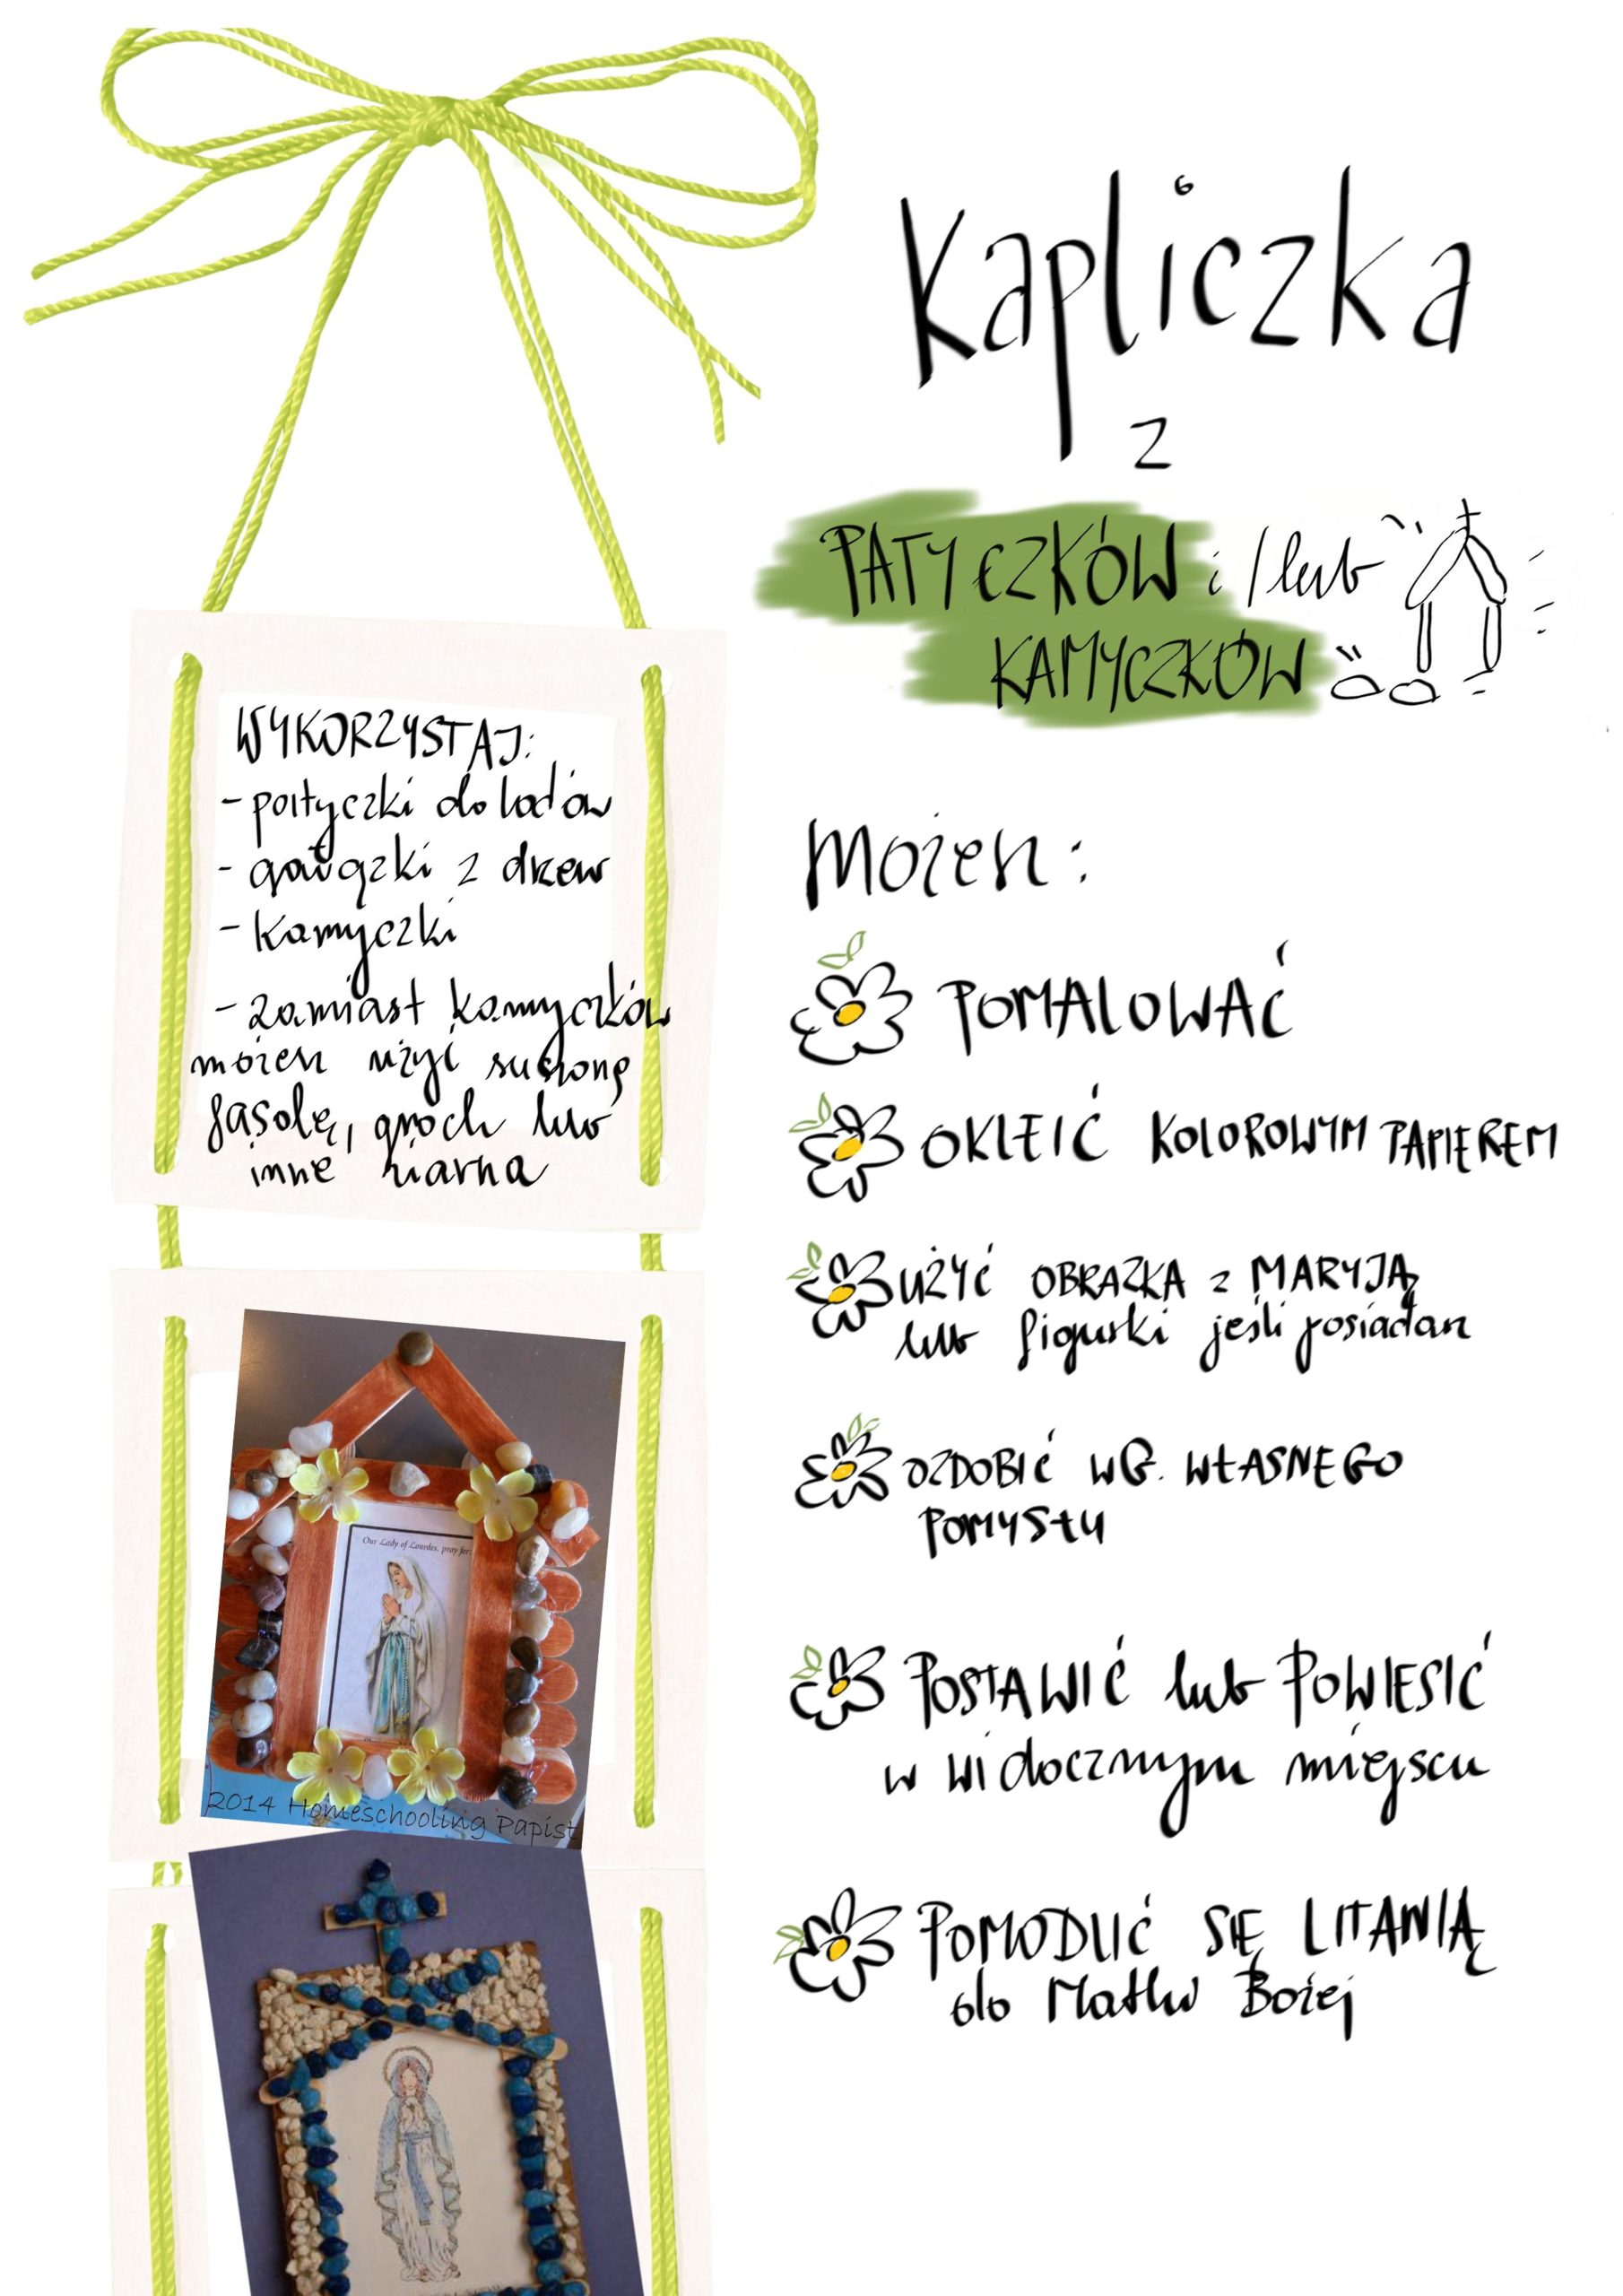 Kapliczka
z
PATYCZKÓW i/lub
KAMYCZKÓW
WYKORZYSTAJ:
- patyczki do lodów
- gałązki z drzew
- kamyczki
- zamiast kamyczków
możesz użyć suszoną
fasolę, groch lub
inne ziarna
Możesz:
POMALOWAĆ
OKLEIĆ KOLOROWYM PAPIEREM
UŻYĆ OBRAZKA z MARYJĄ
lub figurki jeśli posiadasz
OZDOBIĆ WG. WŁASNEGO
POMYSŁU
POSTAWIĆ lub POWIESIĆ
w widocznym miejscu
POMODLIĆ SIĘ LITANIĄ
do Matki Bożej
Our Lady of Lourdes, pray for
2014 Homeschooling Papist